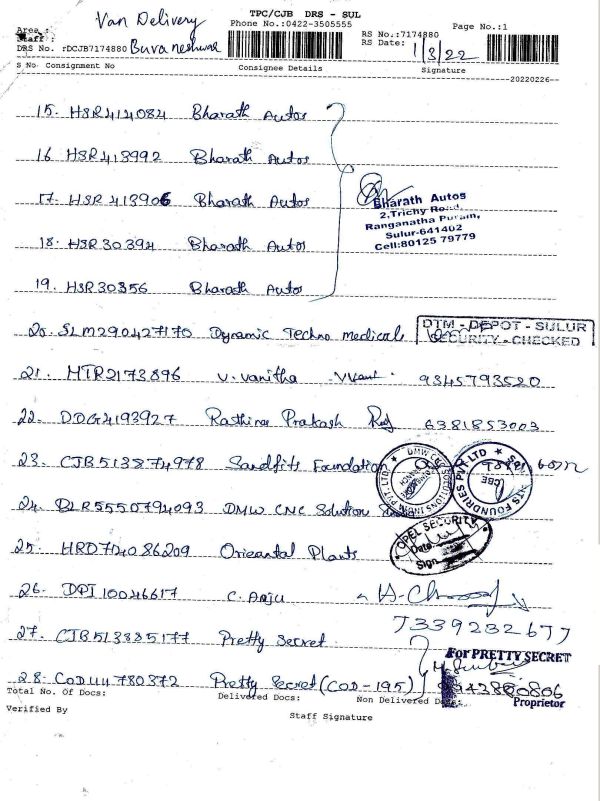 Van Delivery
TPC/CJB DRS - SUL
Phone No.:0422-3505555
Page No.:1
Area :
Staff :
RS No.:7174880
RS Date: 1/3/22
DRS No. :DCJB7174880 Buvaneshwar
S No Consignment No Consignee Details Signature
20220226
15. HSR414084 Bharath Autos
16 HSR413992 Bharath Autos
17. HSR413906 Bharath Autos
18. HSR30394 Bharath Autos
19. HSR30356 Bharath Autos
Bharath Autos
2,Trichy Road,
Ranganatha Puram,
Sulur-641402
Cell:80125 79779
20. SLM290427170 Dynamic Techno medicals
DTM - DEPOT - SULUR
SECURITY - CHECKED
21. MTR2173896 V. Vanitha 9345793520
22. DDG4193927 Rasthina Prakash 6381853003
23. CJB513874978 Sandfits Foundation
DMW CNC SOLUTIONS INDIA PVT LTD
FOUNDRIES PVT LTD
CBE
24. BLR5550794093 DMW CNC Solution
25. HRD724086209 Orieantal Plants
OPEL SECURITY
Date
Sign
26. DPI10046617 C. Anju
7339232677
27. CJB513885177 Pretty Secret
For PRETTY SECRET
28. COD44780372 Pretty Secret (COD-195) 9942880806
Proprietor
Total No. Of Docs: Delivered Docs: Non Delivered Docs:
Verified By
Staff Signature